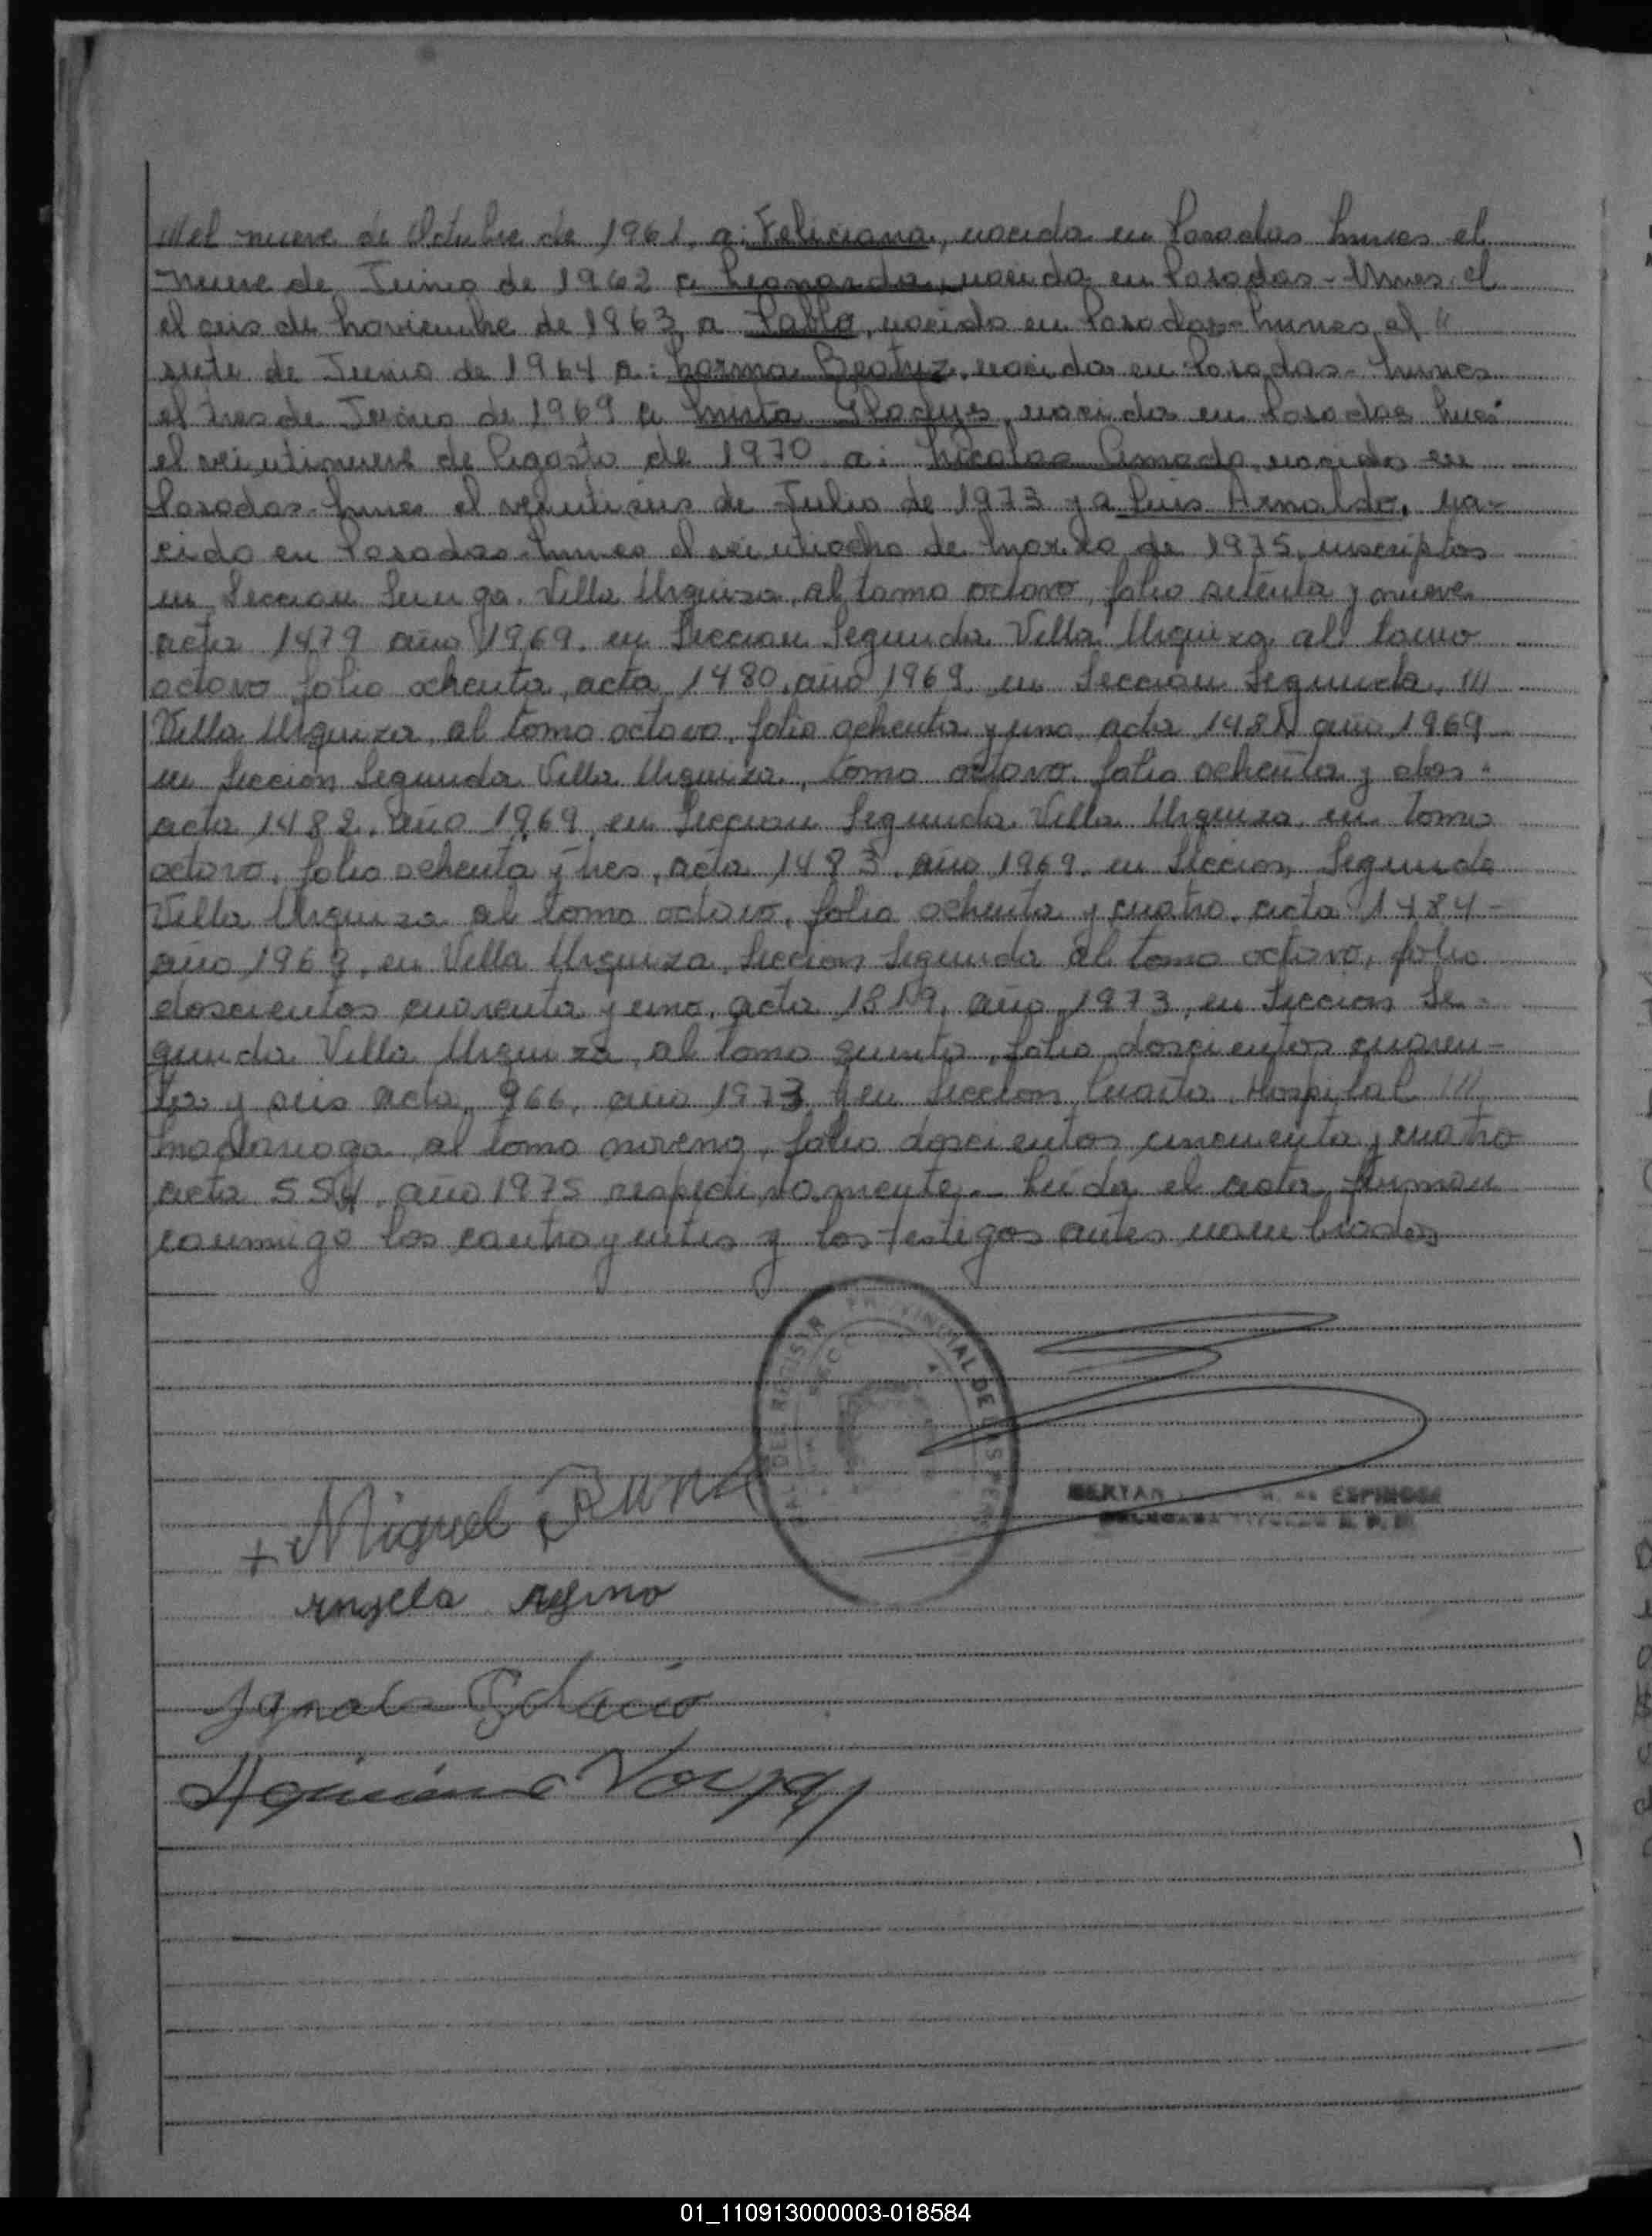 el nueve de Octubre de 1961, a: Feliciana, nacida en Posadas Mnes el
nueve de Junio de 1962 a Leonarda, nacida en Posadas - Mnes. el
el seis de Noviembre de 1963, a Pablo, nacido en Posadas - Mnes, el "
siete de Junio de 1964 a: Norma Beatriz, nacida en Posadas - Mnes
el tres de Junio de 1969 a Mirta Gladys, nacida en Posadas
el veintinueve de Agosto de 1970 a: Nicolas Amado, nacido en
Posadas - Mnes el veintiseis de Julio de 1973 y a Luis Arnaldo, na-
cido en Posadas - Mnes el veintiocho de Marzo de 1975, inscriptos
en Sección Villa Urquiza, al tomo octavo, folio setenta y nueve
acta 1479 año 1969. en Seccion Segunda Villa Urquiza al tomo
octavo folio ochenta, acta 1480, año 1969 en Seccion Segunda, ///
Villa Urquiza, al tomo octavo, folio ochenta y uno, acta 1481 año 1969
en Sección Segunda Villa Urquiza, tomo octavo folio ochenta y dos -
acta 1482, año 1969, en Seccion Segunda Villa Urquiza en tomo
octavo, folio ochenta y tres, acta 1483, año 1969. en Sección Segunda
Villa Urquiza al tomo octavo, folio ochenta y cuatro, acta 1484 -
año 1969, en Villa Urquiza, Seccion Segunda al tomo octavo, folio
doscientos cuarenta y uno, acta 1819, año 1973, en Seccion Se-
gunda Villa Urquiza, al tomo quinto, folio doscientos cuaren-
ta y seis acta 966, año 1973 y en Seccion Cuarta Hospital ///
Madariaga al tomo noveno, folio doscientos cincuenta y cuatro
acta 554 año 1975 respectivamente.- Leída el acta, firman
conmigo los contrayentes y los testigos antes nombrados
PROVINCIAL DE
+ Miguel
Angela
Ignacio
ESPINOSA
01_110913000003-018584